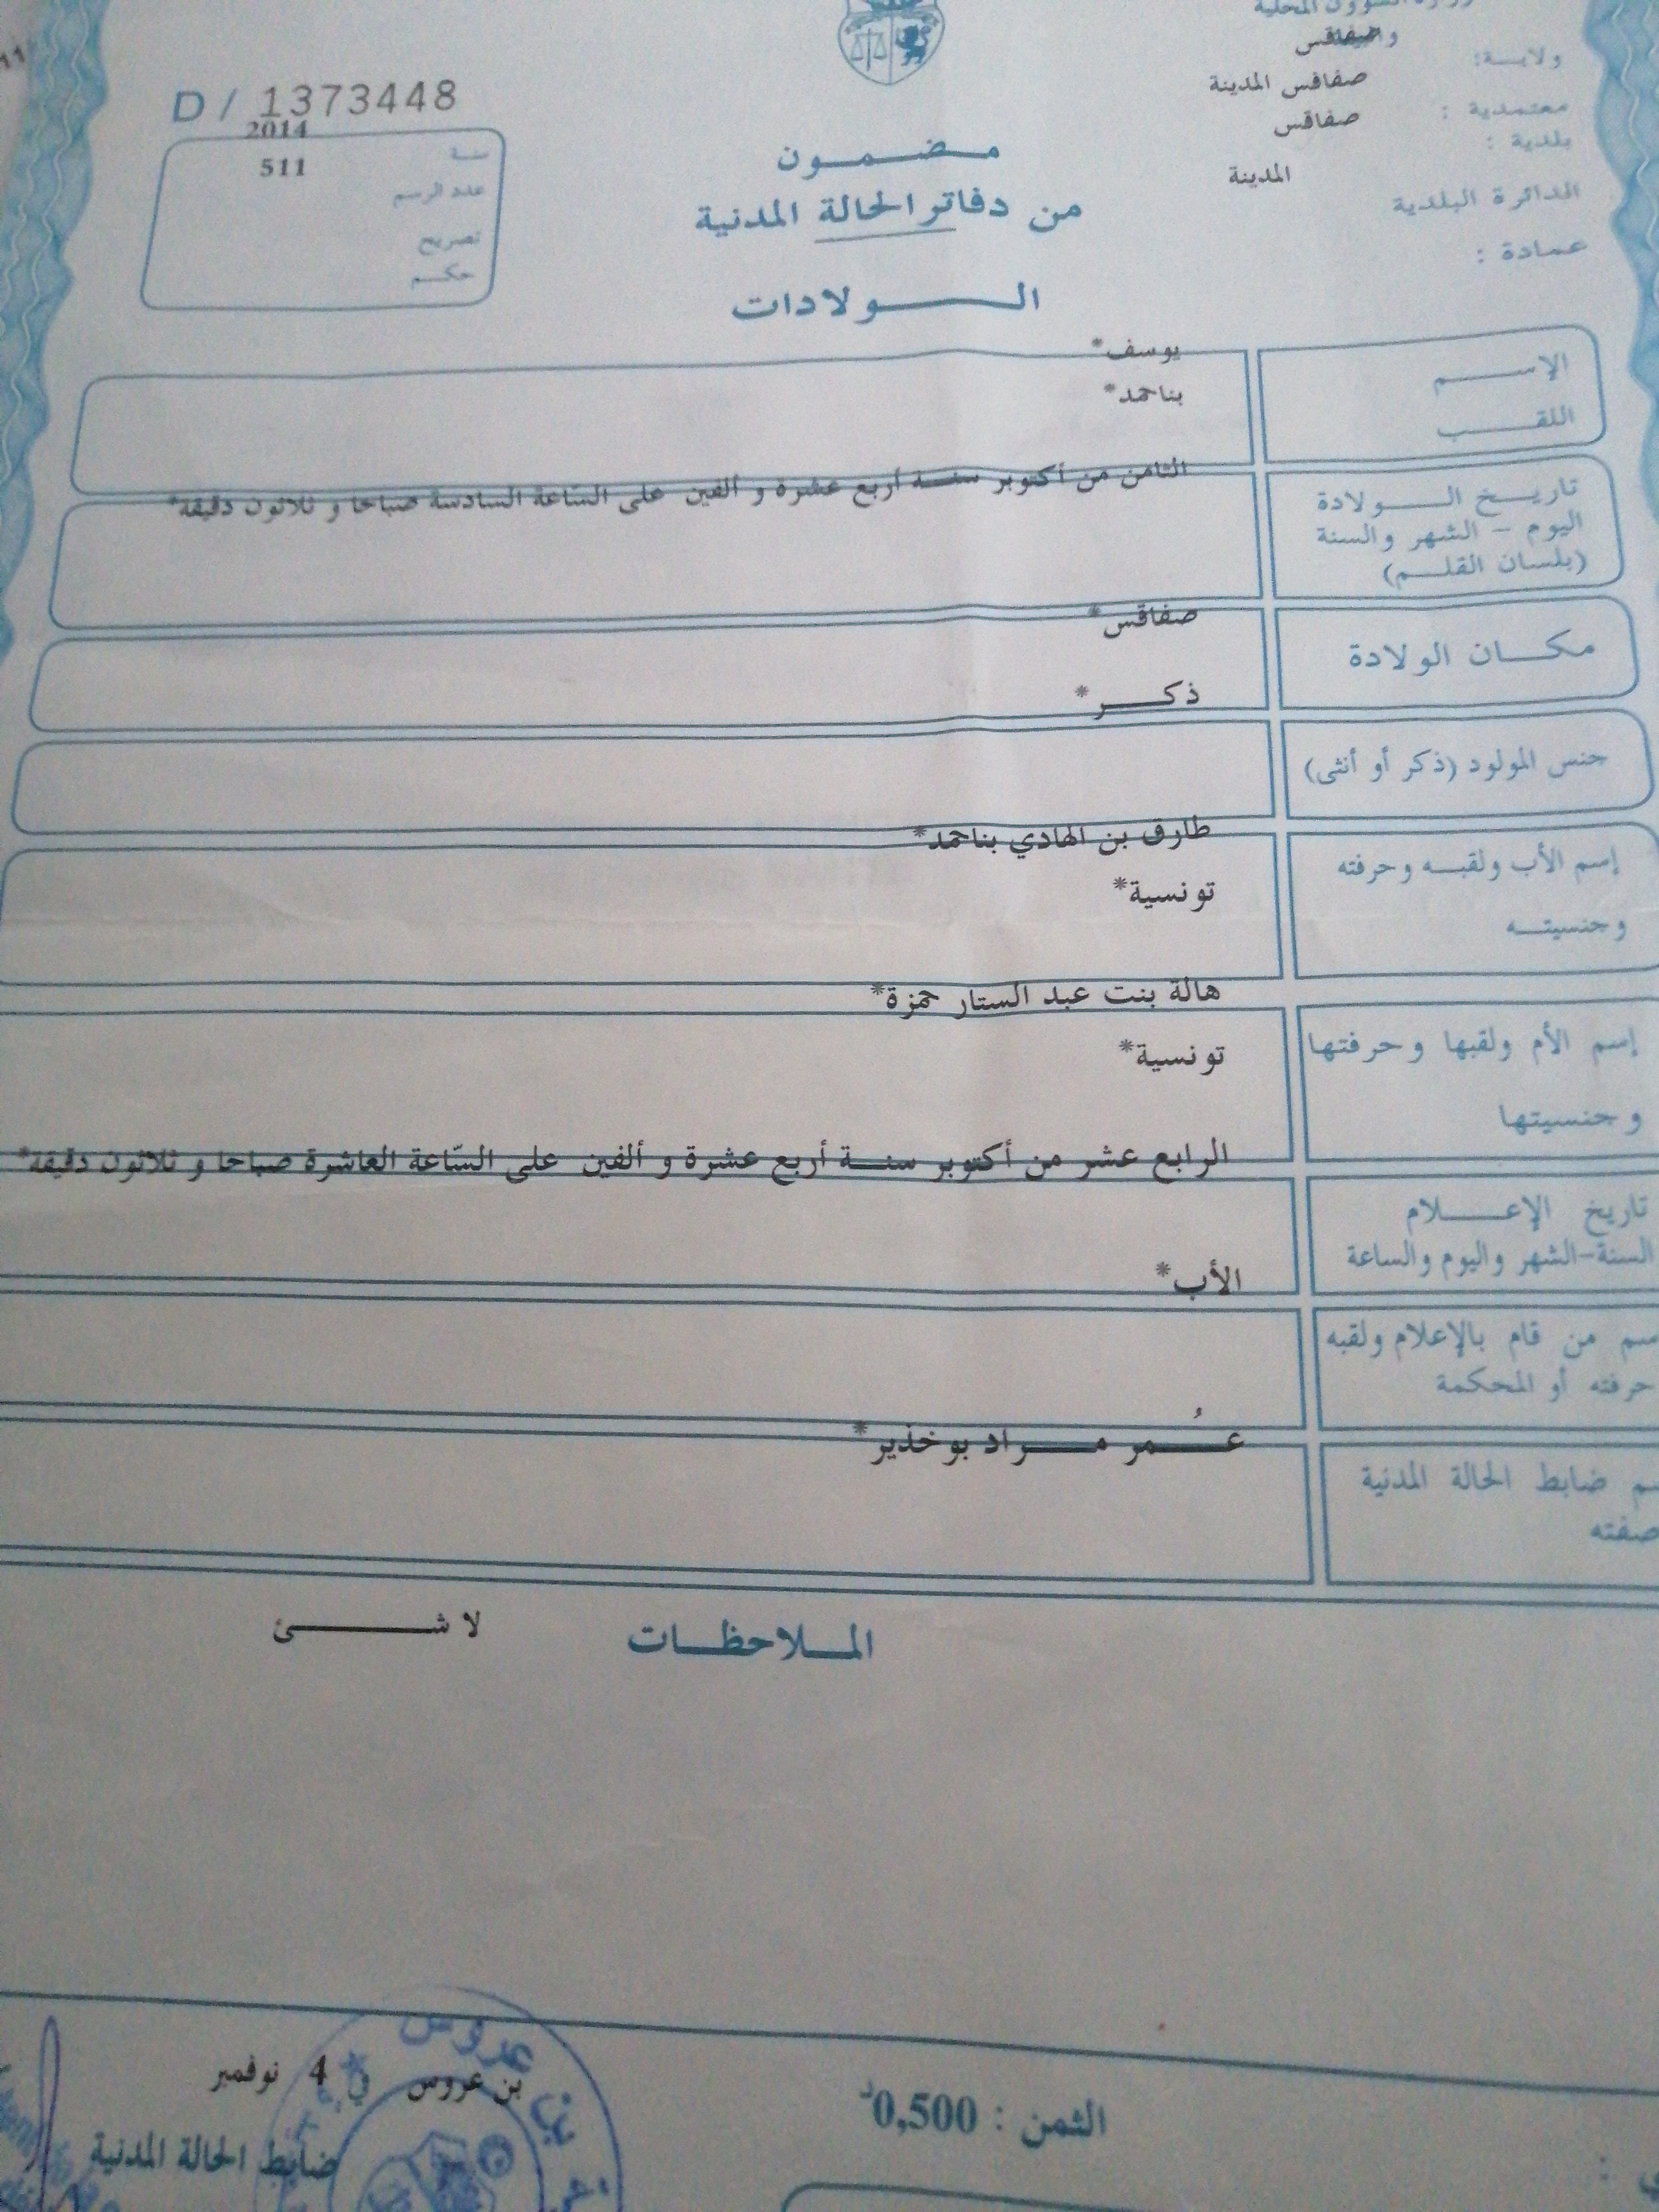 الشؤون المحلية
ولايـــة: صفاقس
معتمدية : صفاقس المدينة
بلدية : صفاقس
الدائرة البلدية المدينة
عمادة :
D / 1373448
سنة 2014
عدد الرسم 511
تصريح
حكم
مضمون
من دفاتر الحالة المدنية
الـولادات
الإسـم يوسف*
اللقـب بناحمد*
تاريخ الـولادة
اليوم – الشهر والسنة
(بلسان القلم)
الثامن من أكتوبر سنة أربع عشرة و ألفين على السّاعة السادسة صباحا و ثلاثون دقيقة*
مكان الولادة صفاقس*
جنس المولود (ذكر أو أنثى) ذكر*
إسم الأب ولقبه وحرفته طارق بن الهادي بناحمد*
وجنسيته تونسية*
إسم الأم ولقبها وحرفتها هالة بنت عبد الستار حمزة*
وجنسيتها تونسية*
تاريخ الإعلام
السنة-الشهر واليوم والساعة
الرابع عشر من أكتوبر سنة أربع عشرة و ألفين على السّاعة العاشرة صباحا و ثلاثون دقيقة*
من قام بالإعلام ولقبه الأب*
حرفته أو المحكمة
ضابط الحالة المدنية عُمر مراد بوخذير*
صفته
الملاحظات لا شئ
بن عروس في 4 نوفمبر
ضابط الحالة المدنية
الثمن : 0,500د
بن عروس